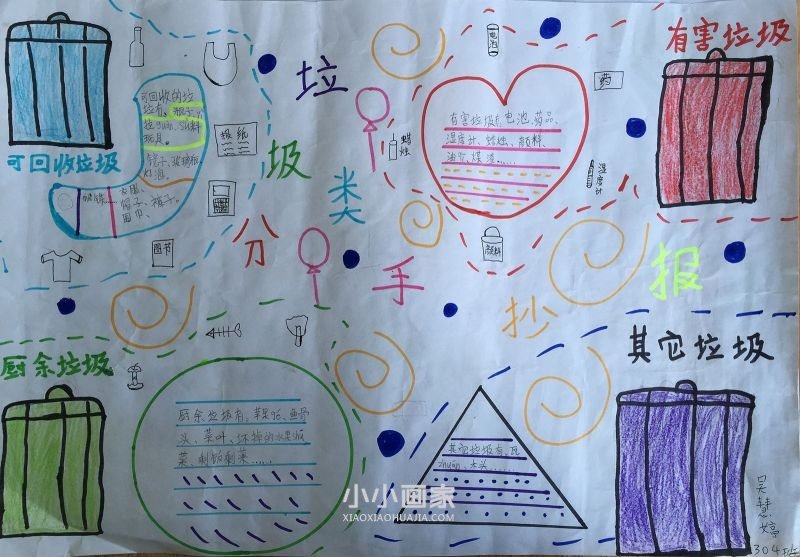 垃圾分类手抄报
可回收垃圾
可回收的垃
圾有:瓶子、
玩具。
衣服、
帽子、裤子、
围巾、
报纸
图书
有害垃圾
电池
药
蜡烛
温度计
颜料
有害垃圾有电池、药品、
温度计、蜡烛、颜料、
厨余垃圾
厨余垃圾有:苹果核、鱼骨
头、菜叶、坏掉的水果饭
菜、剩饭剩菜……
其它垃圾
其它垃圾有:瓦
zhuān、木头……
吴慧婷
304班
小小画家
XIAOXIAOHUAJIA.COM